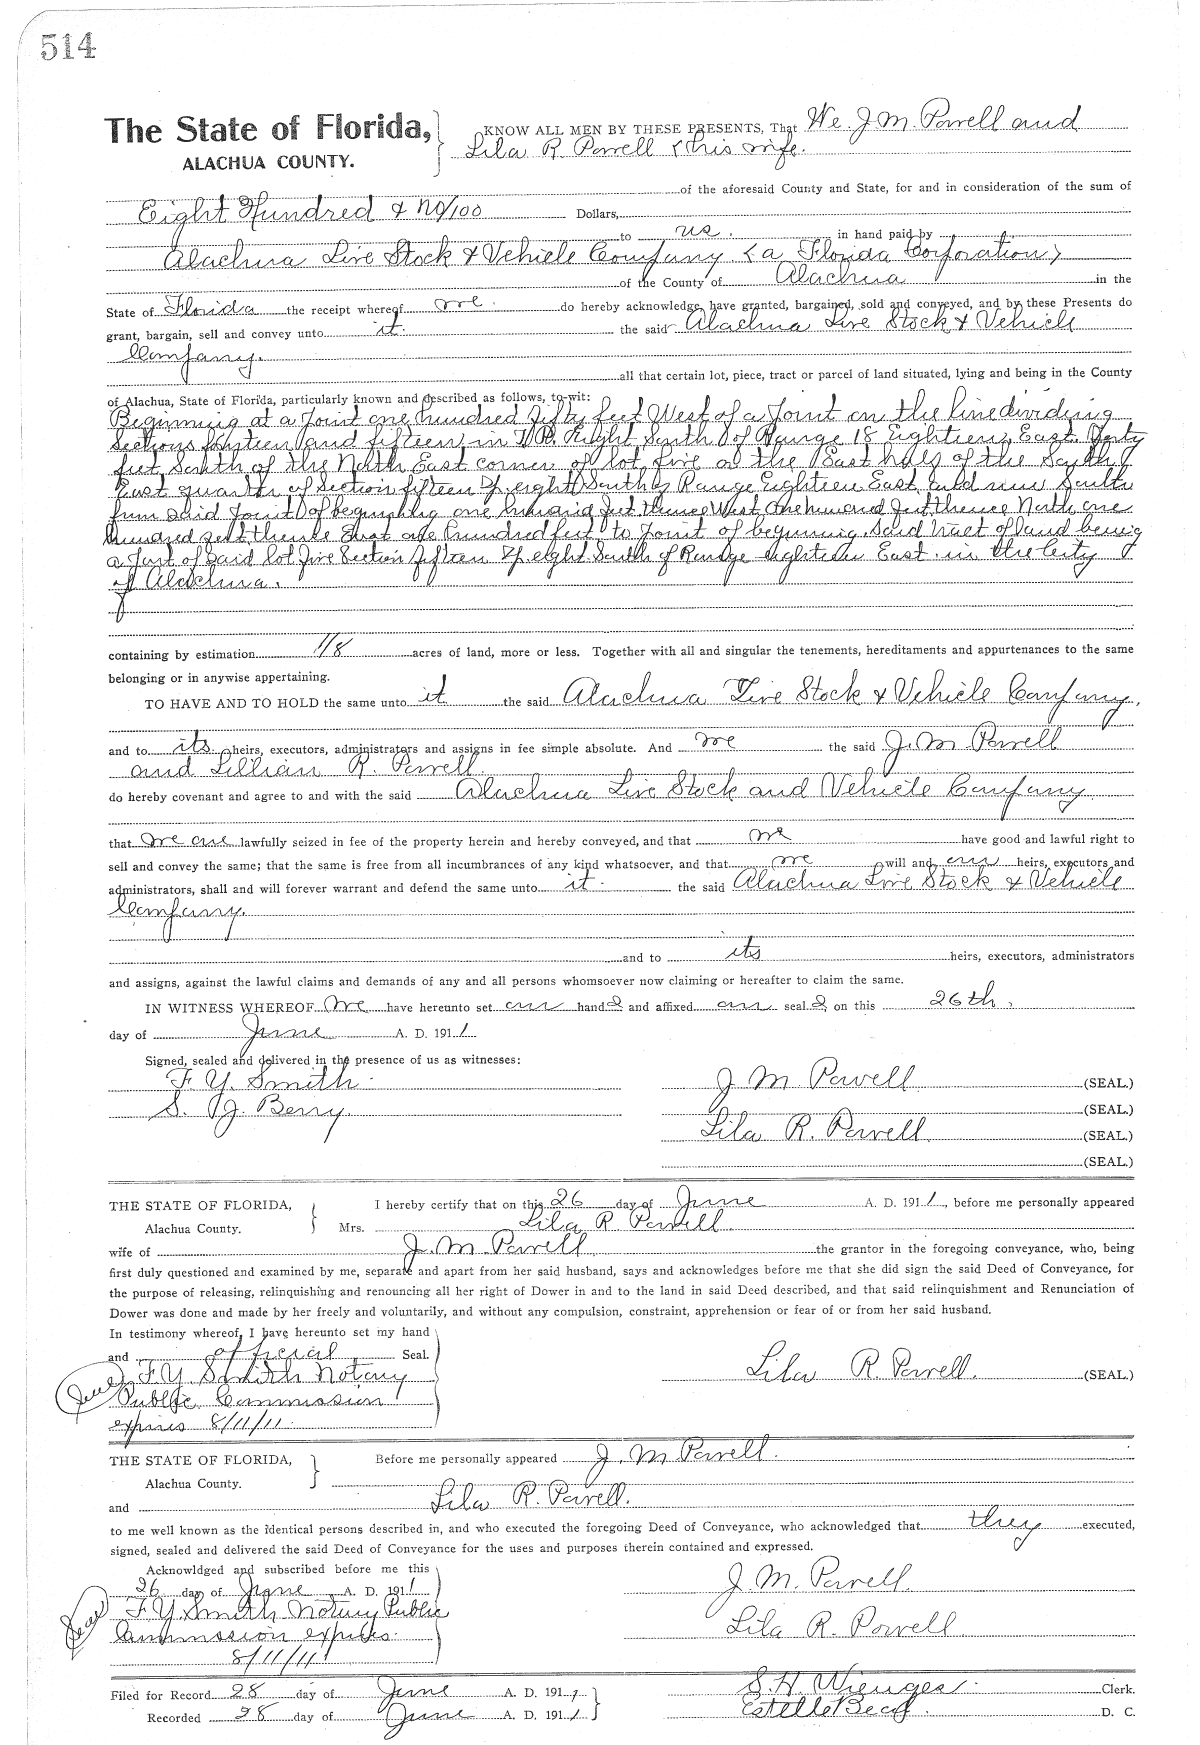 514
The State of Florida, KNOW ALL MEN BY THESE PRESENTS, That We J. M. Powell and
ALACHUA COUNTY. Lila R. Powell (his wife.
of the aforesaid County and State, for and in consideration of the sum of
Eight Hundred & no/100 Dollars,
to us. in hand paid by
Alachua Live Stock & Vehicle Company (a Florida Corporation)
of the County of Alachua in the
State of Florida the receipt whereof we do hereby acknowledge, have granted, bargained, sold and conveyed, and by these Presents do
grant, bargain, sell and convey unto it the said Alachua Live Stock & Vehicle
Company.
all that certain lot, piece, tract or parcel of land situated, lying and being in the County
of Alachua, State of Florida, particularly known and described as follows, to-wit:
Beginning at a Point one hundred fifty feet West of a Point on the line dividing
Sections fourteen and fifteen in Eight South of Range 18 Eighteen East forty
feet South of the North East corner of lot five or the East half of the South
East quarter of Section fifteen Tp eight South of Range Eighteen East and run South
from said Point of beginning one hundred feet thence West One hundred feet thence North one
hundred feet thence East one hundred feet to Point of beginning. Said tract of land being
a Part of said lot five Section fifteen Tp eight South of Range eighteen East in the City
of Alachua.
containing by estimation 1/8 acres of land, more or less. Together with all and singular the tenements, hereditaments and appurtenances to the same
belonging or in anywise appertaining.
TO HAVE AND TO HOLD the same unto it the said Alachua Live Stock & Vehicle Company,
and to its heirs, executors, administrators and assigns in fee simple absolute. And we the said J. M. Powell
and Lillian R. Powell
do hereby covenant and agree to and with the said Alachua Live Stock and Vehicle Company
that we are lawfully seized in fee of the property herein and hereby conveyed, and that we have good and lawful right to
sell and convey the same; that the same is free from all incumbrances of any kind whatsoever, and that we will and our heirs, executors and
administrators, shall and will forever warrant and defend the same unto it the said Alachua Live Stock & Vehicle
Company.
and to its heirs, executors, administrators
and assigns, against the lawful claims and demands of any and all persons whomsoever now claiming or hereafter to claim the same.
IN WITNESS WHEREOF We have hereunto set our hands and affixed our seals on this 26th,
day of June A. D. 1911
Signed, sealed and delivered in the presence of us as witnesses:
F. Y. Smith J M Powell (SEAL.)
S. J. Berry. (SEAL.)
Lila R. Powell (SEAL.)
(SEAL.)
THE STATE OF FLORIDA, I hereby certify that on this 26 day of June A. D. 1911, before me personally appeared
Alachua County. Mrs. Lila R Powell
wife of J. M. Powell the grantor in the foregoing conveyance, who, being
first duly questioned and examined by me, separate and apart from her said husband, says and acknowledges before me that she did sign the said Deed of Conveyance, for
the purpose of releasing, relinquishing and renouncing all her right of Dower in and to the land in said Deed described, and that said relinquishment and Renunciation of
Dower was done and made by her freely and voluntarily, and without any compulsion, constraint, apprehension or fear of or from her said husband.
In testimony whereof, I have hereunto set my hand
and official Seal.
F. Y. Smith Notary Lila R. Powell. (SEAL.)
(Seal) Public Commission
expires 8/11/11.
THE STATE OF FLORIDA, Before me personally appeared J. M Powell.
Alachua County.
and Lila R. Powell.
to me well known as the identical persons described in, and who executed the foregoing Deed of Conveyance, who acknowledged that they executed,
signed, sealed and delivered the said Deed of Conveyance for the uses and purposes therein contained and expressed.
Acknowldged and subscribed before me this
26 day of June A. D. 1911 J. M. Powell
(Seal) F. Y. Smith Notary Public
Commission expires Lila R. Powell
8/11/11
Filed for Record 28 day of June A. D. 1911 S. H. Wienges. Clerk.
Recorded 28 day of June A. D. 1911 Estelle D. C.